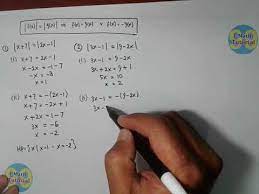 |f(x)| = |g(x)| ⇔ f(x) = g(x) ∨ f(x) = -g(x)
① |x+7| = |2x-1|
(i) x+7 = 2x-1
x-2x = -1-7
-x = -8
x = 1
(ii) x+7 = -(2x-1)
x+7 = -2x+1
x+2x = 1-7
3x = -6
x = -2
HP = {x | x=1 ∨ x=-2}
② |3x-1| = |9-2x|
(i) 3x-1 = 9-2x
3x+2x = 9+1
5x = 10
x = 2
(ii) 3x-1 = -(9-2x)
3x-
EMath
Matorial
EMath
Matorial